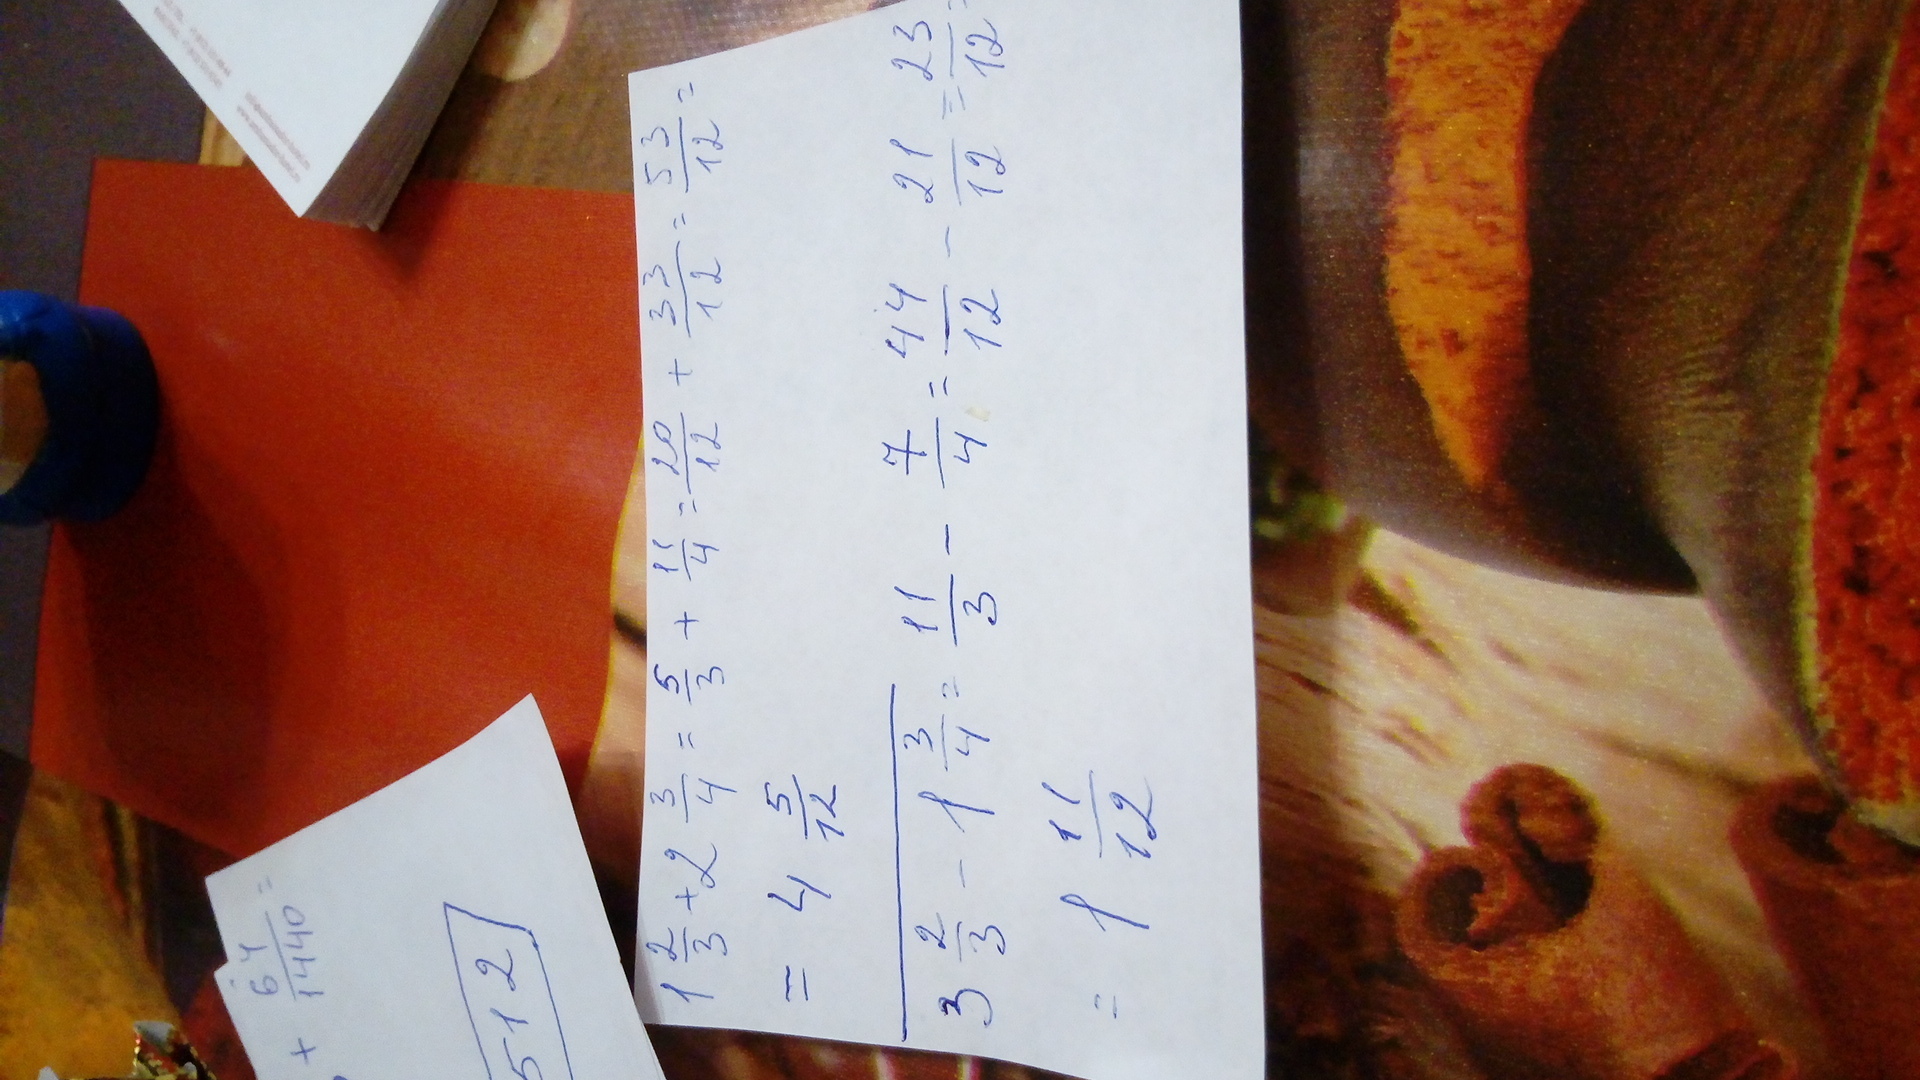 1 2/3 + 2 3/4 = 5/3 + 11/4 = 20/12 + 33/12 = 53/12 =
= 4 5/12
3 2/3 - 1 3/4 = 11/3 - 7/4 = 44/12 - 21/12 = 23/12 =
= 1 11/12
+ 64/1440 =
512